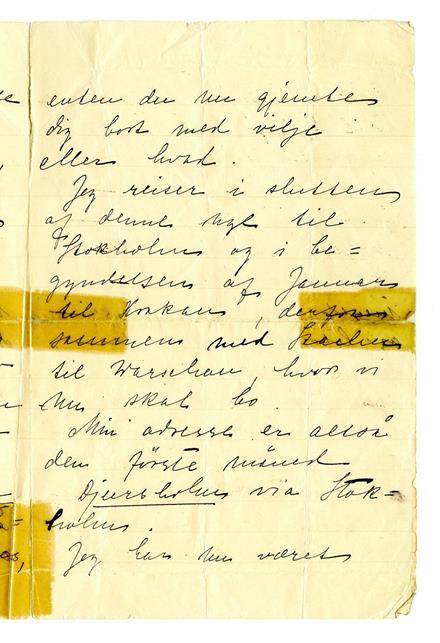 enten du nu gjemte
dig bort med vilje
eller hvad.
Jeg reiser i slutten
af denne uge til
Stokholm og i be=
gyndelsen af Januar
til Krakau,
sammen med
til Warschau, hvor vi
nu skal bo.
Min adresse er altså
den förste måned
Djursholm via Stok=
holm.
Jeg har nu været